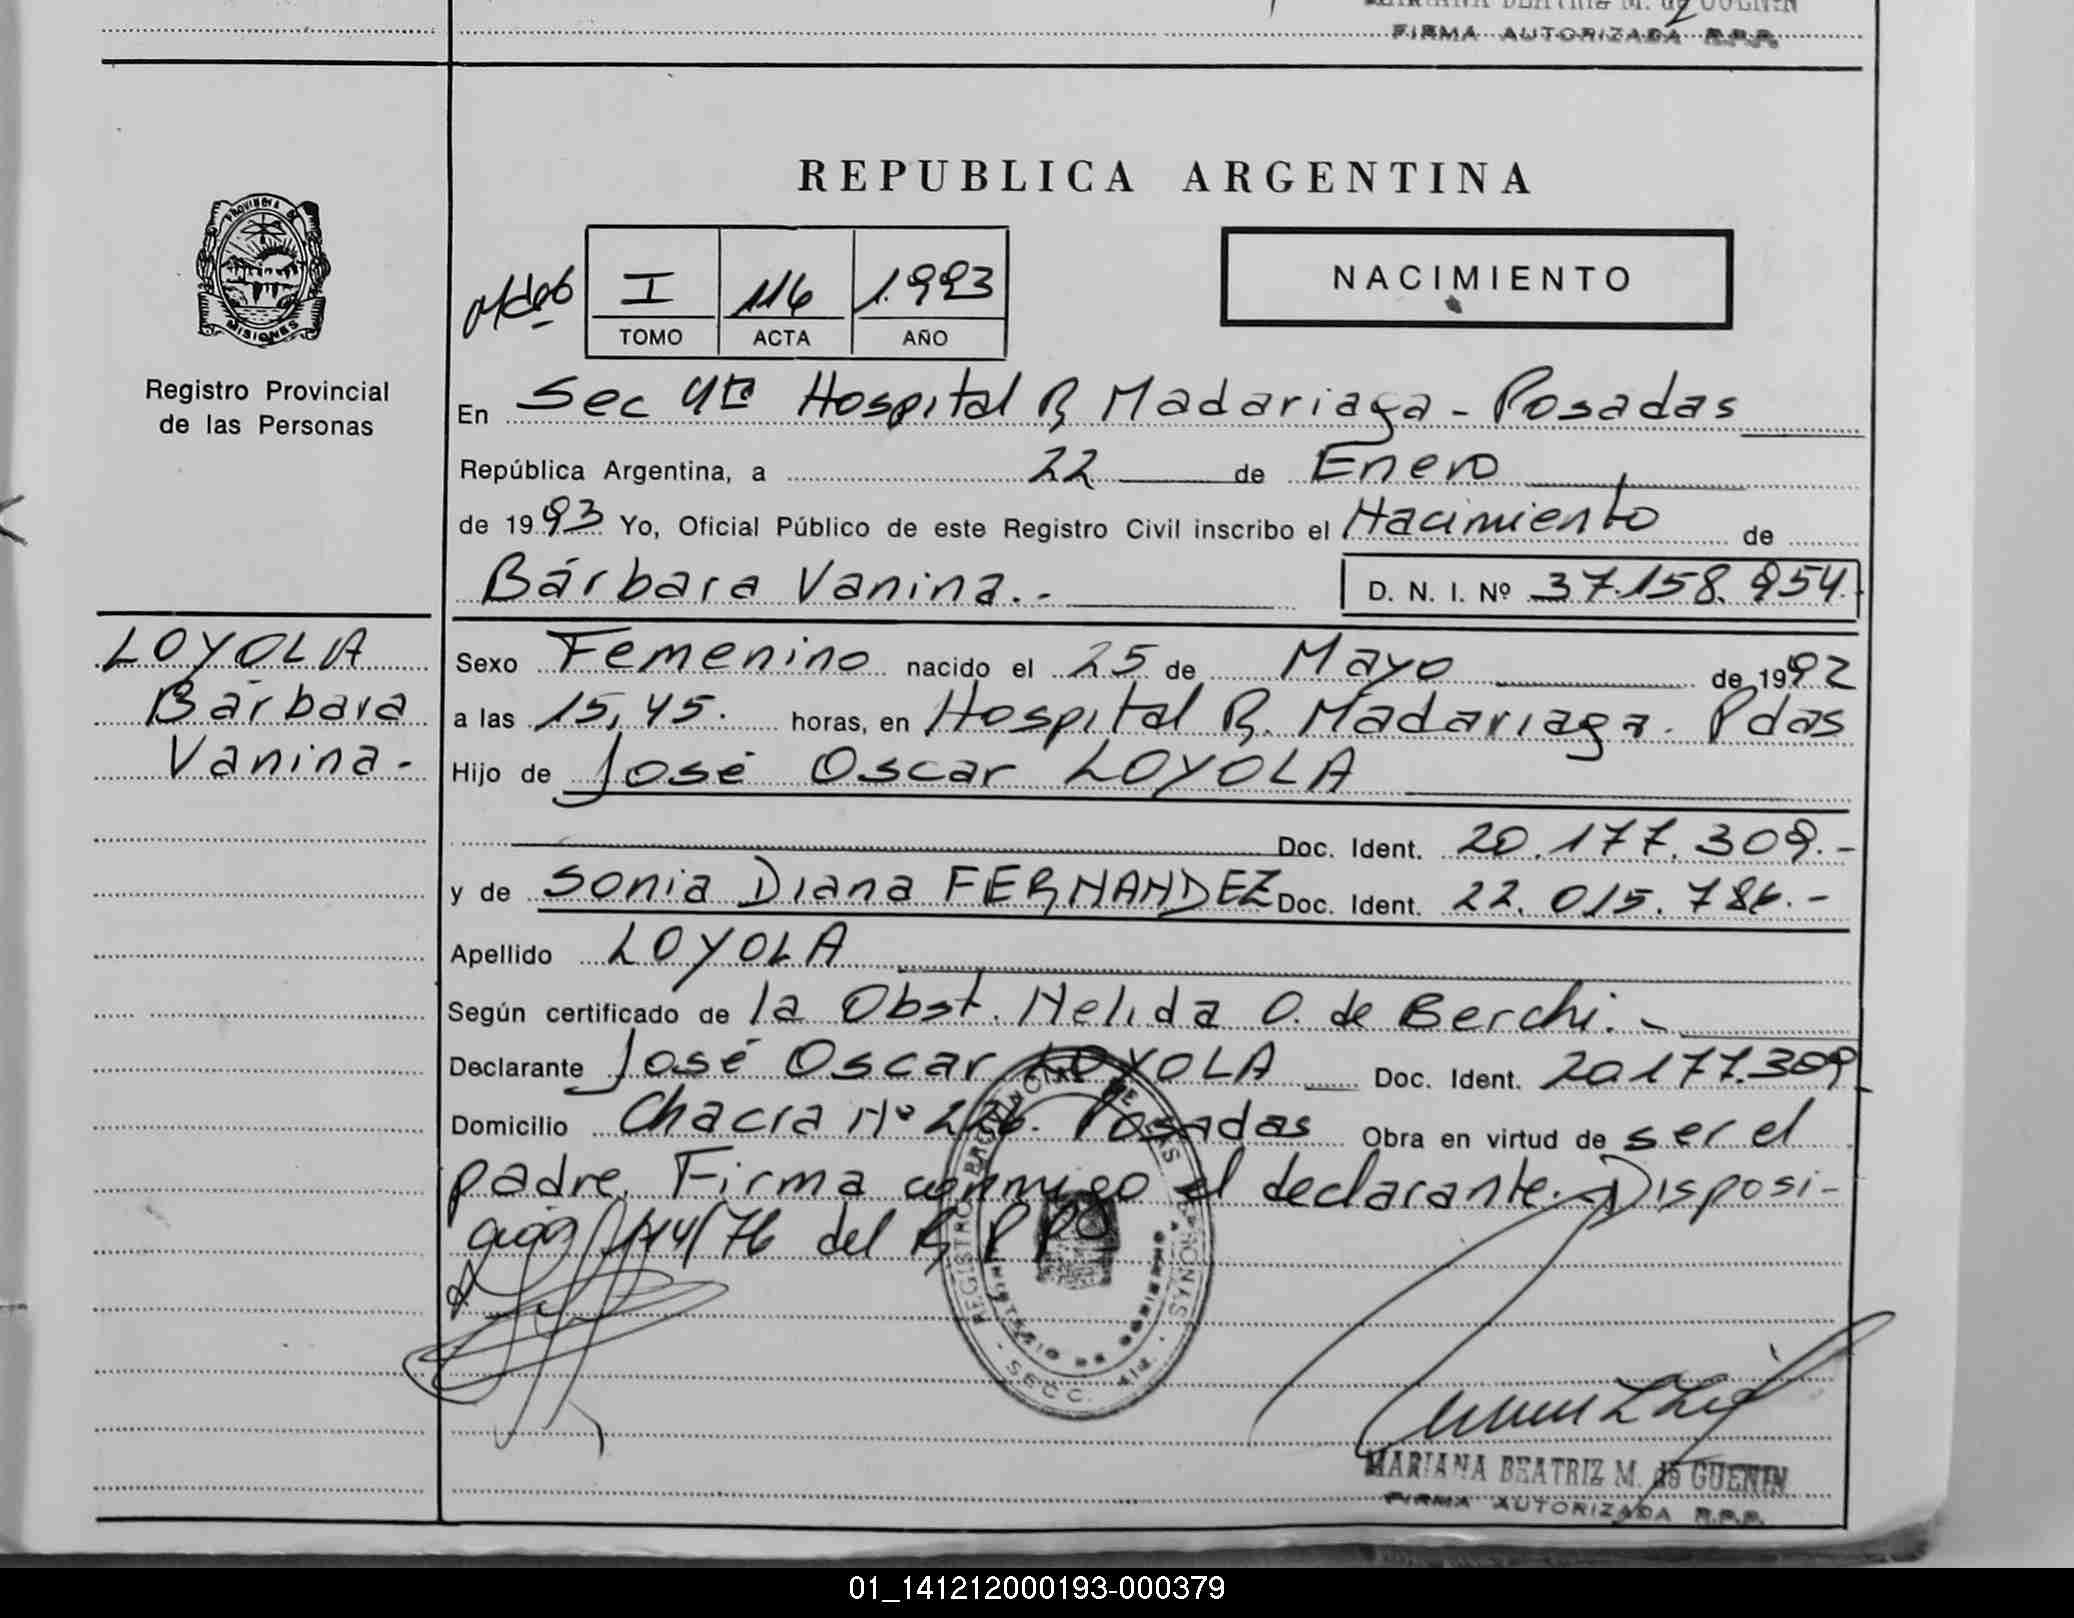 MARIANA BEATRIZ M. de GUENIN
FIRMA AUTORIZADA R.P.P.
REPUBLICA ARGENTINA
PROVINCIA DE MISIONES
I 116 1.993
TOMO ACTA AÑO
NACIMIENTO
Registro Provincial
de las Personas
En Sec 4ta Hospital R Madariaga - Posadas
República Argentina, a 22 de Enero
de 1993 Yo, Oficial Público de este Registro Civil inscribo el Nacimiento de
Bárbara Vanina.- D. N. I. Nº 37.158.954.
LOYOLA
Bárbara
Vanina-
Sexo Femenino nacido el 25 de Mayo de 1992
a las 15,45. horas, en Hospital R. Madariaga. Pdas
Hijo de José Oscar LOYOLA
Doc. Ident. 20.177.309.-
y de Sonia Diana FERNANDEZ Doc. Ident. 22.015.786.-
Apellido LOYOLA
Según certificado de la Obst. Nelida O. de Berchi.-
Declarante José Oscar LOYOLA Doc. Ident. 20.177.309
Domicilio Chacra Nº 226. Posadas Obra en virtud de ser el
padre. Firma conmigo el declarante. Disposi-
ción 114/76 del R P P
REGISTRO PROVINCIAL DE LAS PERSONAS
MINISTERIO DE GOBIERNO
SECC.
MARIANA BEATRIZ M. de GUENIN
FIRMA AUTORIZADA R.P.P.
01_141212000193-000379